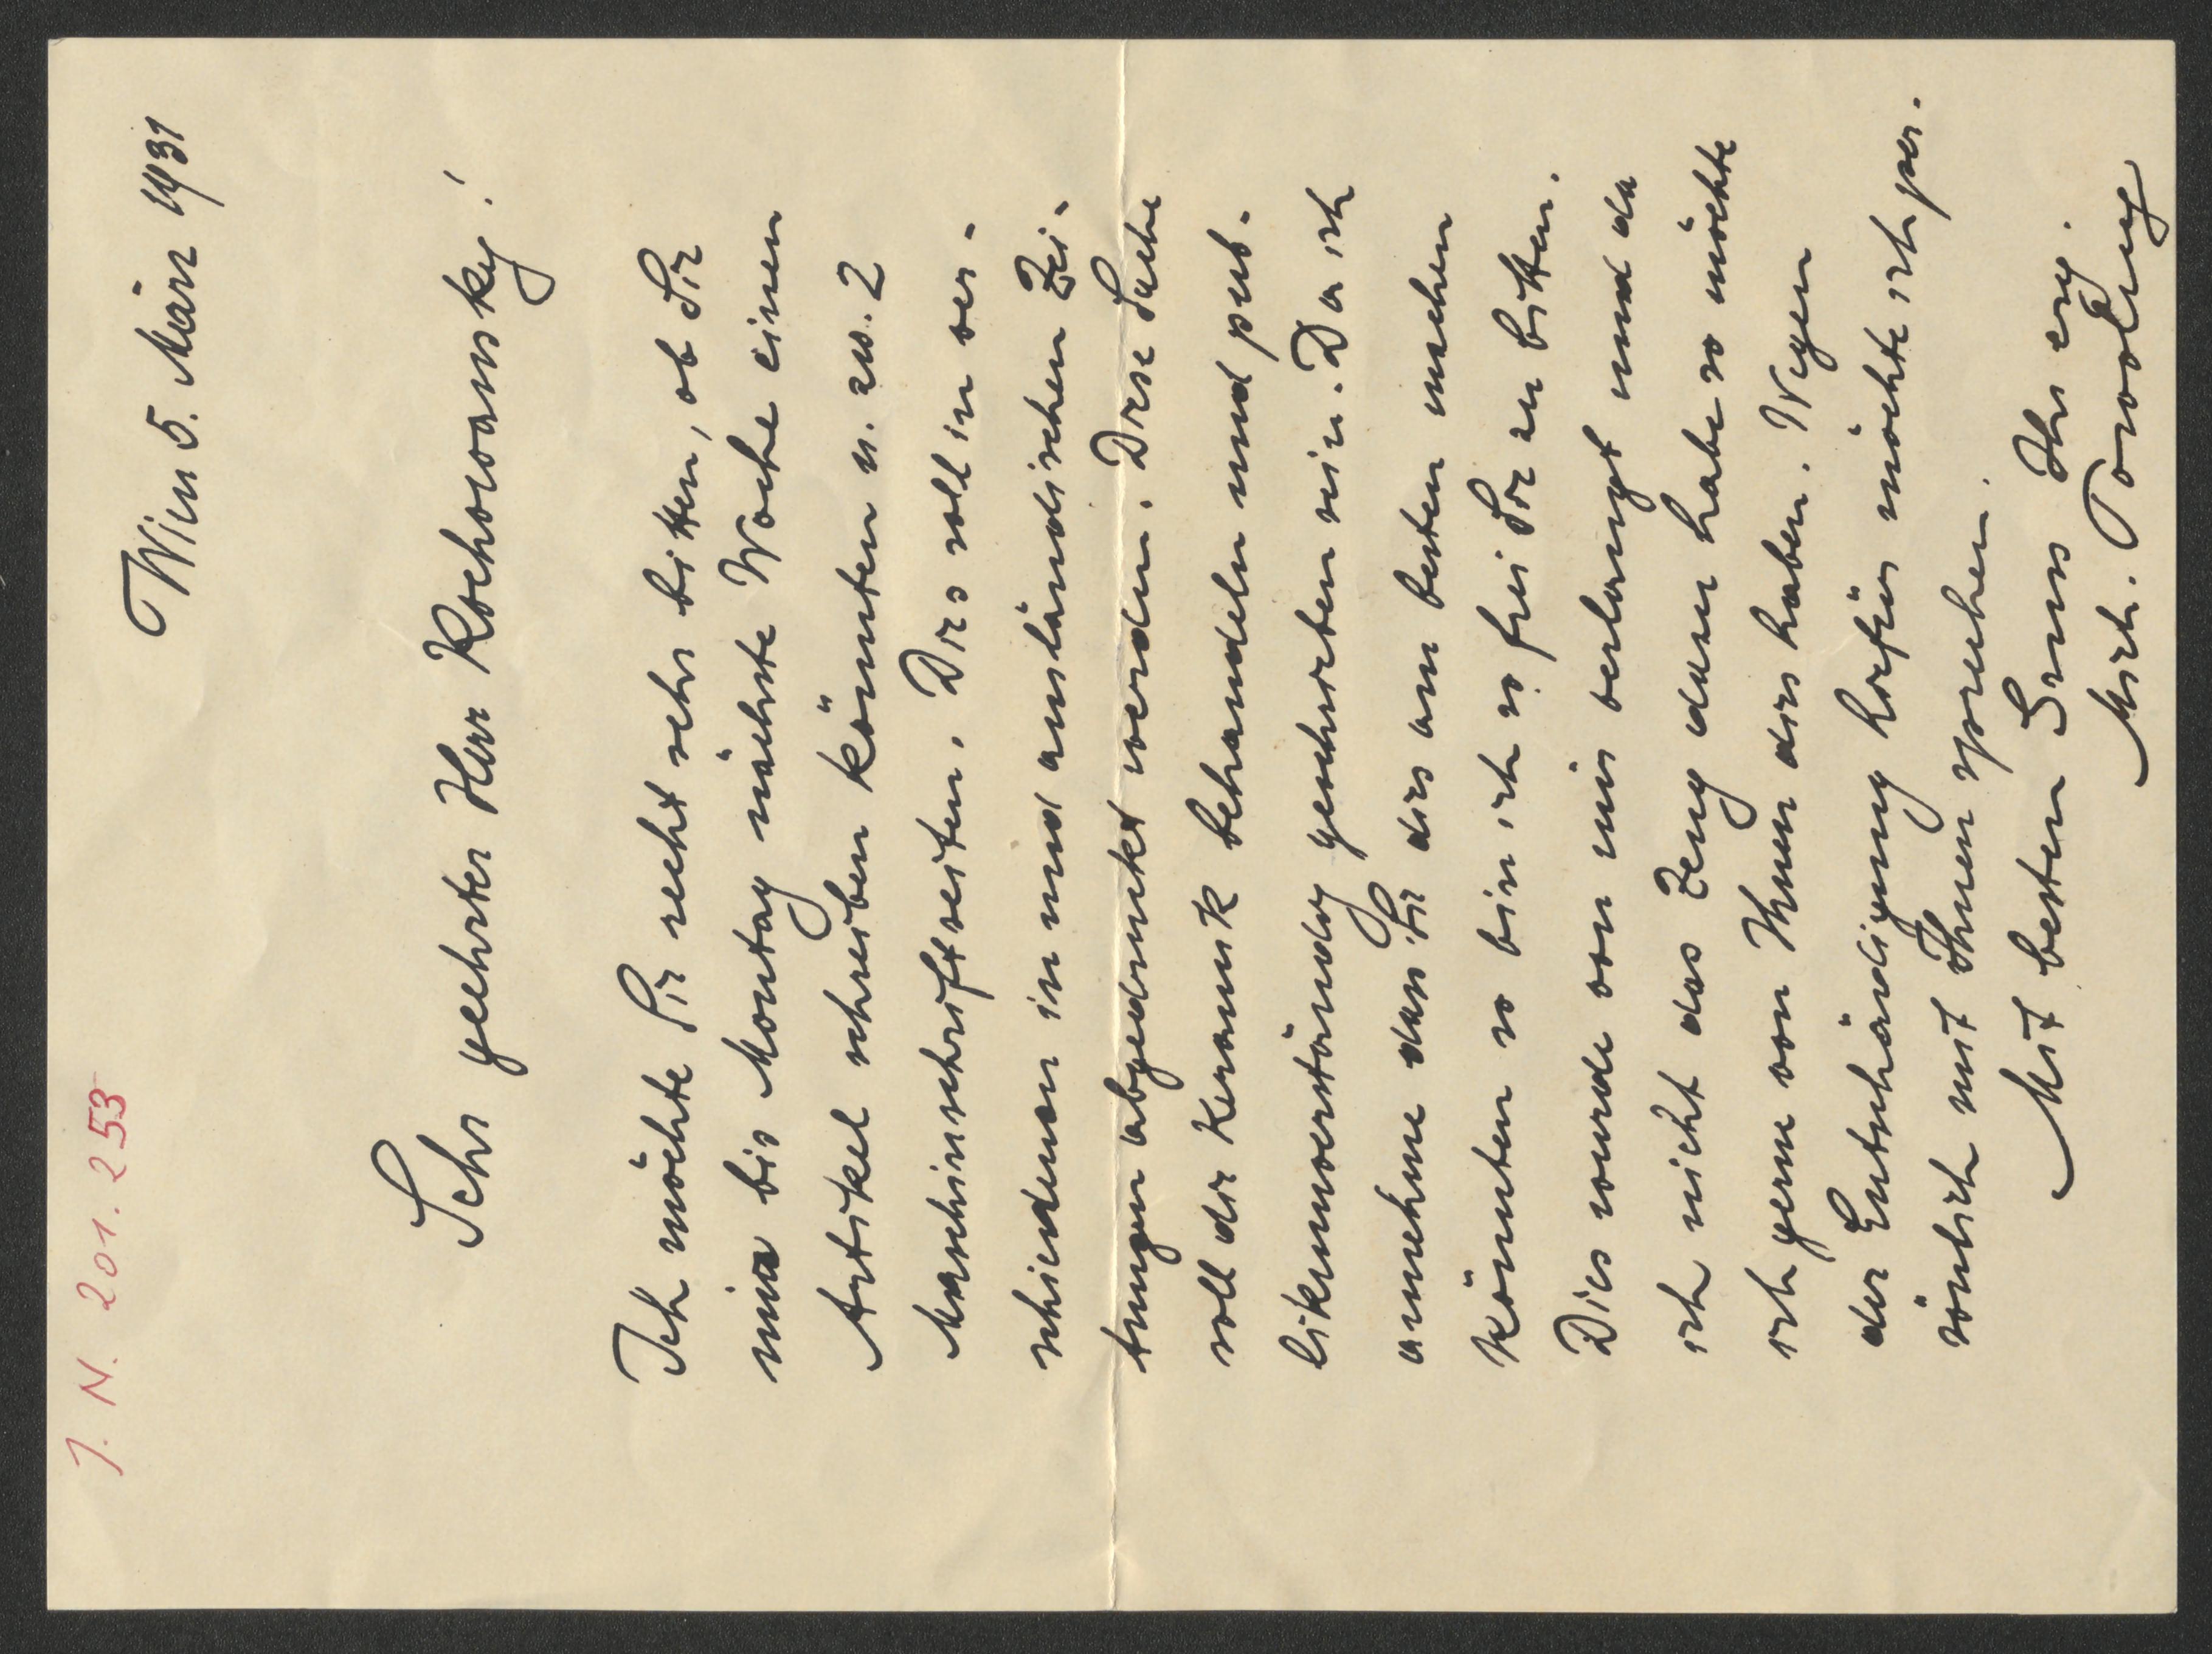 J. N. 201.253
Wien 5. März 1931
Sehr geehrter Herr Rochowansky!
Ich möchte Sie recht sehr bitten, ob Sie
mir bis Montag nächste Woche einen
Artikel schreiben könnten u. zw. 2
Maschinschriftseiten. Dies soll in ver-
schiedenen in und ausländischen Zei-
tungen abgedruckt werden. Diese Sache
soll die Keramik behandeln und pub-
likumverständig geschrieben sein. Da ich
annehme dass Sie dies am besten machen
könnten so bin ich so frei Sie zu bitten.
Dies wurde von mir verlangt und da
ich nicht das Zeug dazu habe so möchte
ich gerne von Ihnen dies haben. Wegen
der Entschädigung hiefür möchte ich per-
sönlich mit Ihnen sprechen.
Mit besten Gruss Ihr erg.
Mich. Powolny